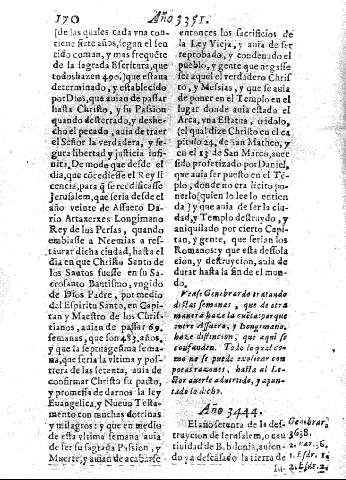 170
Año 3351.
(de las quales cada vna con
tiene siete años, segun el sen
tido comun, y mas frequẽte
de la sagrada Escritura, que
todos hazen 490.) que estaua
determinado, y establecido
por Dios, que auian de passar
hasta Christo, y su Passion
quando desterrado, y deshe-
cho el pecado, auia de traer
el Señor la verdadera, y se-
gura libertad y justicia infi-
nita, De modo que desde el
dia, que cõcediesse el Rey li
cencia, para q̃ se reedificasse
Ierusalem, que seria desde el
año veinte de Assuero Da-
rio Artaxerxes Longimano
Rey de los Persas, quando
embiasse a Neemias a res-
taurar dicha ciudad, hasta el
dia en que Christo Santo de
los Santos fuesse en su Sa-
crosanto Baptismo, vngido
de Dios Padre, por medio
del Espiritu Santo, en Capi-
tan y Maestro de los Chris-
tianos, auian de passar 69.
semanas, que son 483. años,
y que la septuagesima sema-
na, que seria la vltima y pos-
trera de las setenta, auia de
confirmar Christo su pacto,
y promessa de darnos la ley
Euangelica, y Nueuo Testa-
mento con muchas dotrinas
y milagros: y que en medio
de esta vltima semana auia
de ser su sagrada Passion, y
Muerte, y auian de acabarse
entonces los sacrificios de
la Ley Vieja, y auia de ser
reprobado, y condenado el
pueblo, y gente que negasse
ser aquel el verdadero Chris
to, y Messias, y que se auia
de poner en el Templo en el
lugar donde auia estado el
Arca, vna Estatua, o idolo,
(el qual dize Christo en el ca
pitulo 24. de san Matheo, y
en el 13 de San Marco, auer
sido profetizado por Daniel,
que auia ser puesto en el Tẽ-
plo, donde no era licito po-
nerlo) quien lo lee lo entien
da) y que auia de ser la ciu-
dad, y Templo destruydo, y
aniquilado por cierto Capi-
tan, y gente, que serian los
Romanos: y que esta dessola-
cion, y destruycion, auia de
durar hasta la fin de el mun-
do.
Vease Genebrardo tratando
destas semanas, que de otra
manera haze la cuẽta: porque
entre Assuero, y Longimano,
haze distincion, que aqui se
confunden. Todo lo qual co-
mo no se puede explicar con
pocas razones, basta al Le-
ctor auerle aduertido, y apun-
tado lo dicho.
Año 3444.
El año setenta de la des-
truycion de Ierusalem, o cau
tiuidad de Babilonia, auien-
do ya descansado la tierra de
Iu-
Genebrar.
3638.
2. Par. 36.
1. Esdr. 1.
2. Esdr. 2.